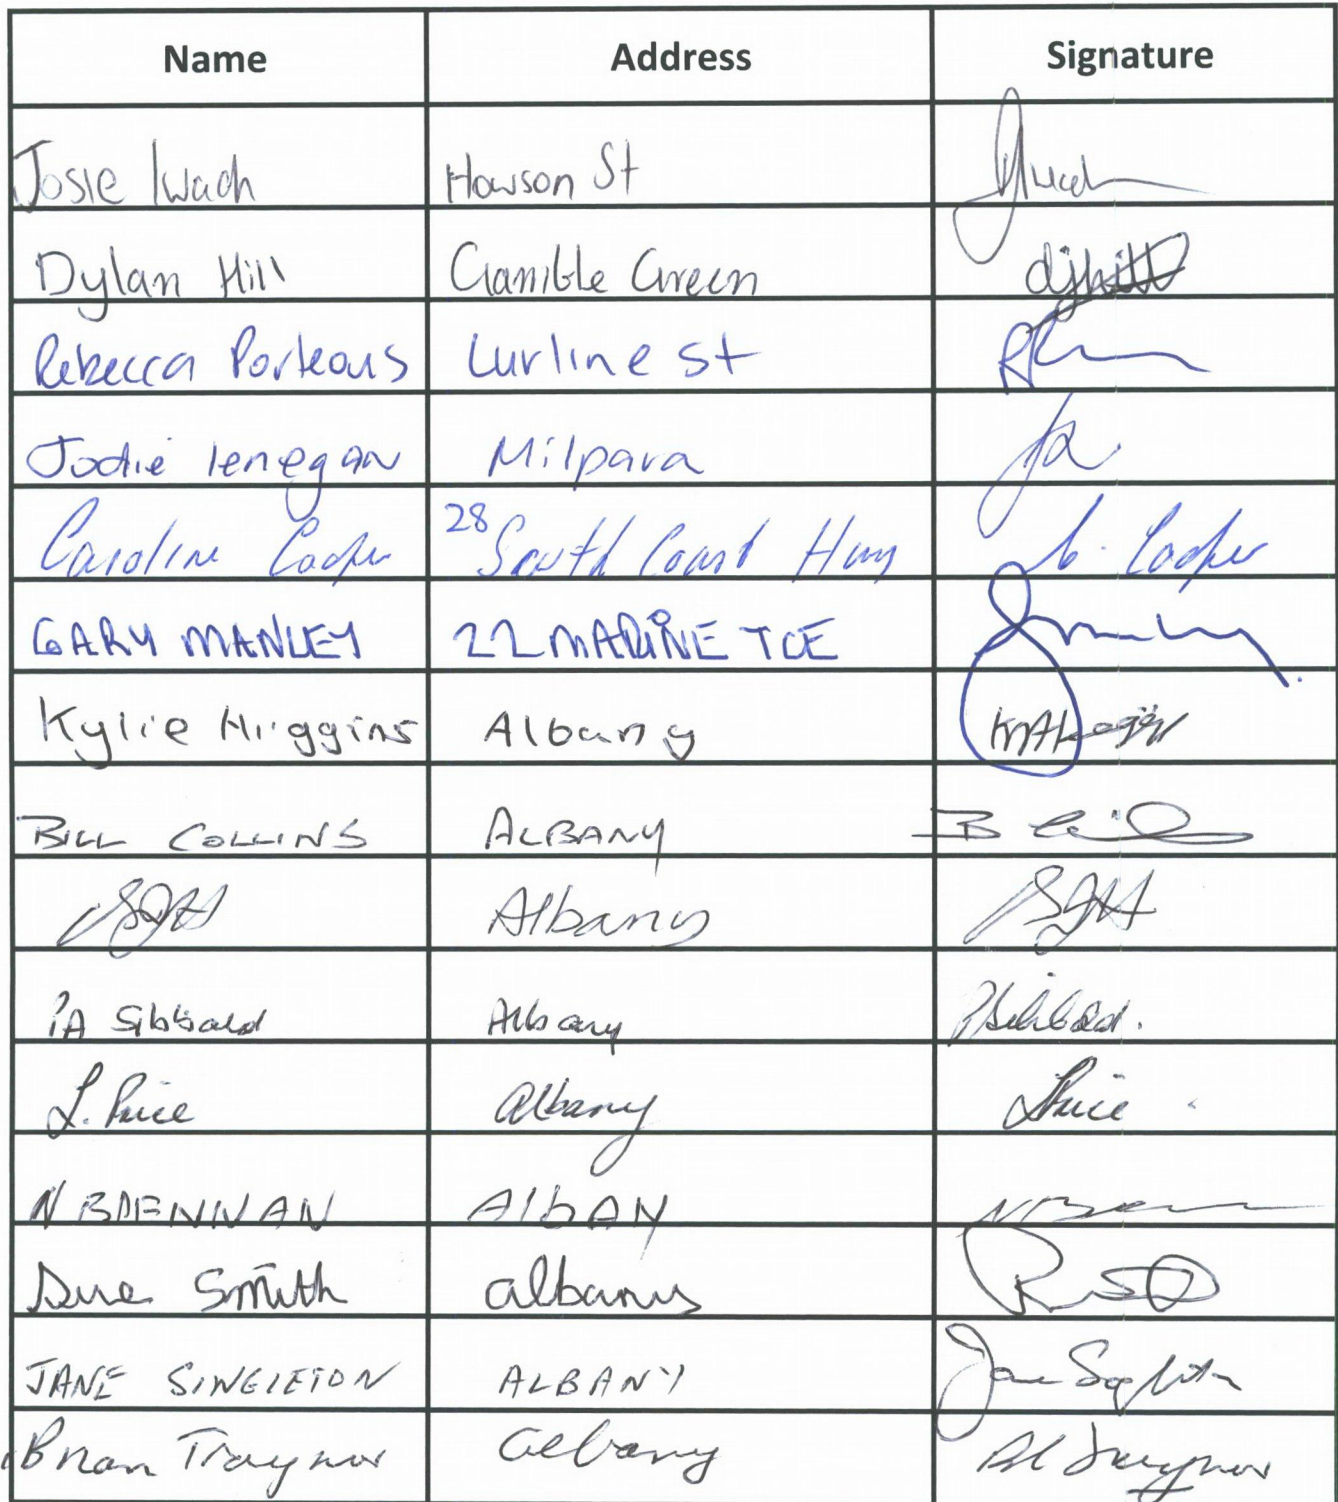 Name Address Signature
Josie Iwach Howson St
Dylan Hill Gamble Green djhill
Rebecca Porteous Lurline St
Jodie Lenegan Milpara
Caroline Cooper 28 South Coast Hwy C. Cooper
GARY MANLEY 22 MARINE TCE
Kylie Higgins Albany
BILL COLLINS ALBANY
Albany
PA Sibbald Albany PSibbald.
L. Price Albany LPrice
N BRENNAN AlbANY
Sue Smith albany
JANE SINGLETON ALBANY
Brian Traynor Albany